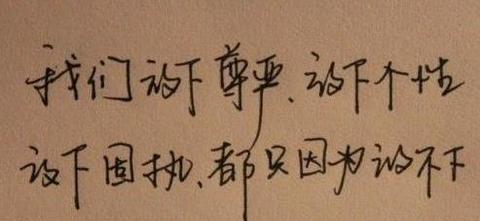 我们放下尊严、放下个性
放下固执、都只因为放不下